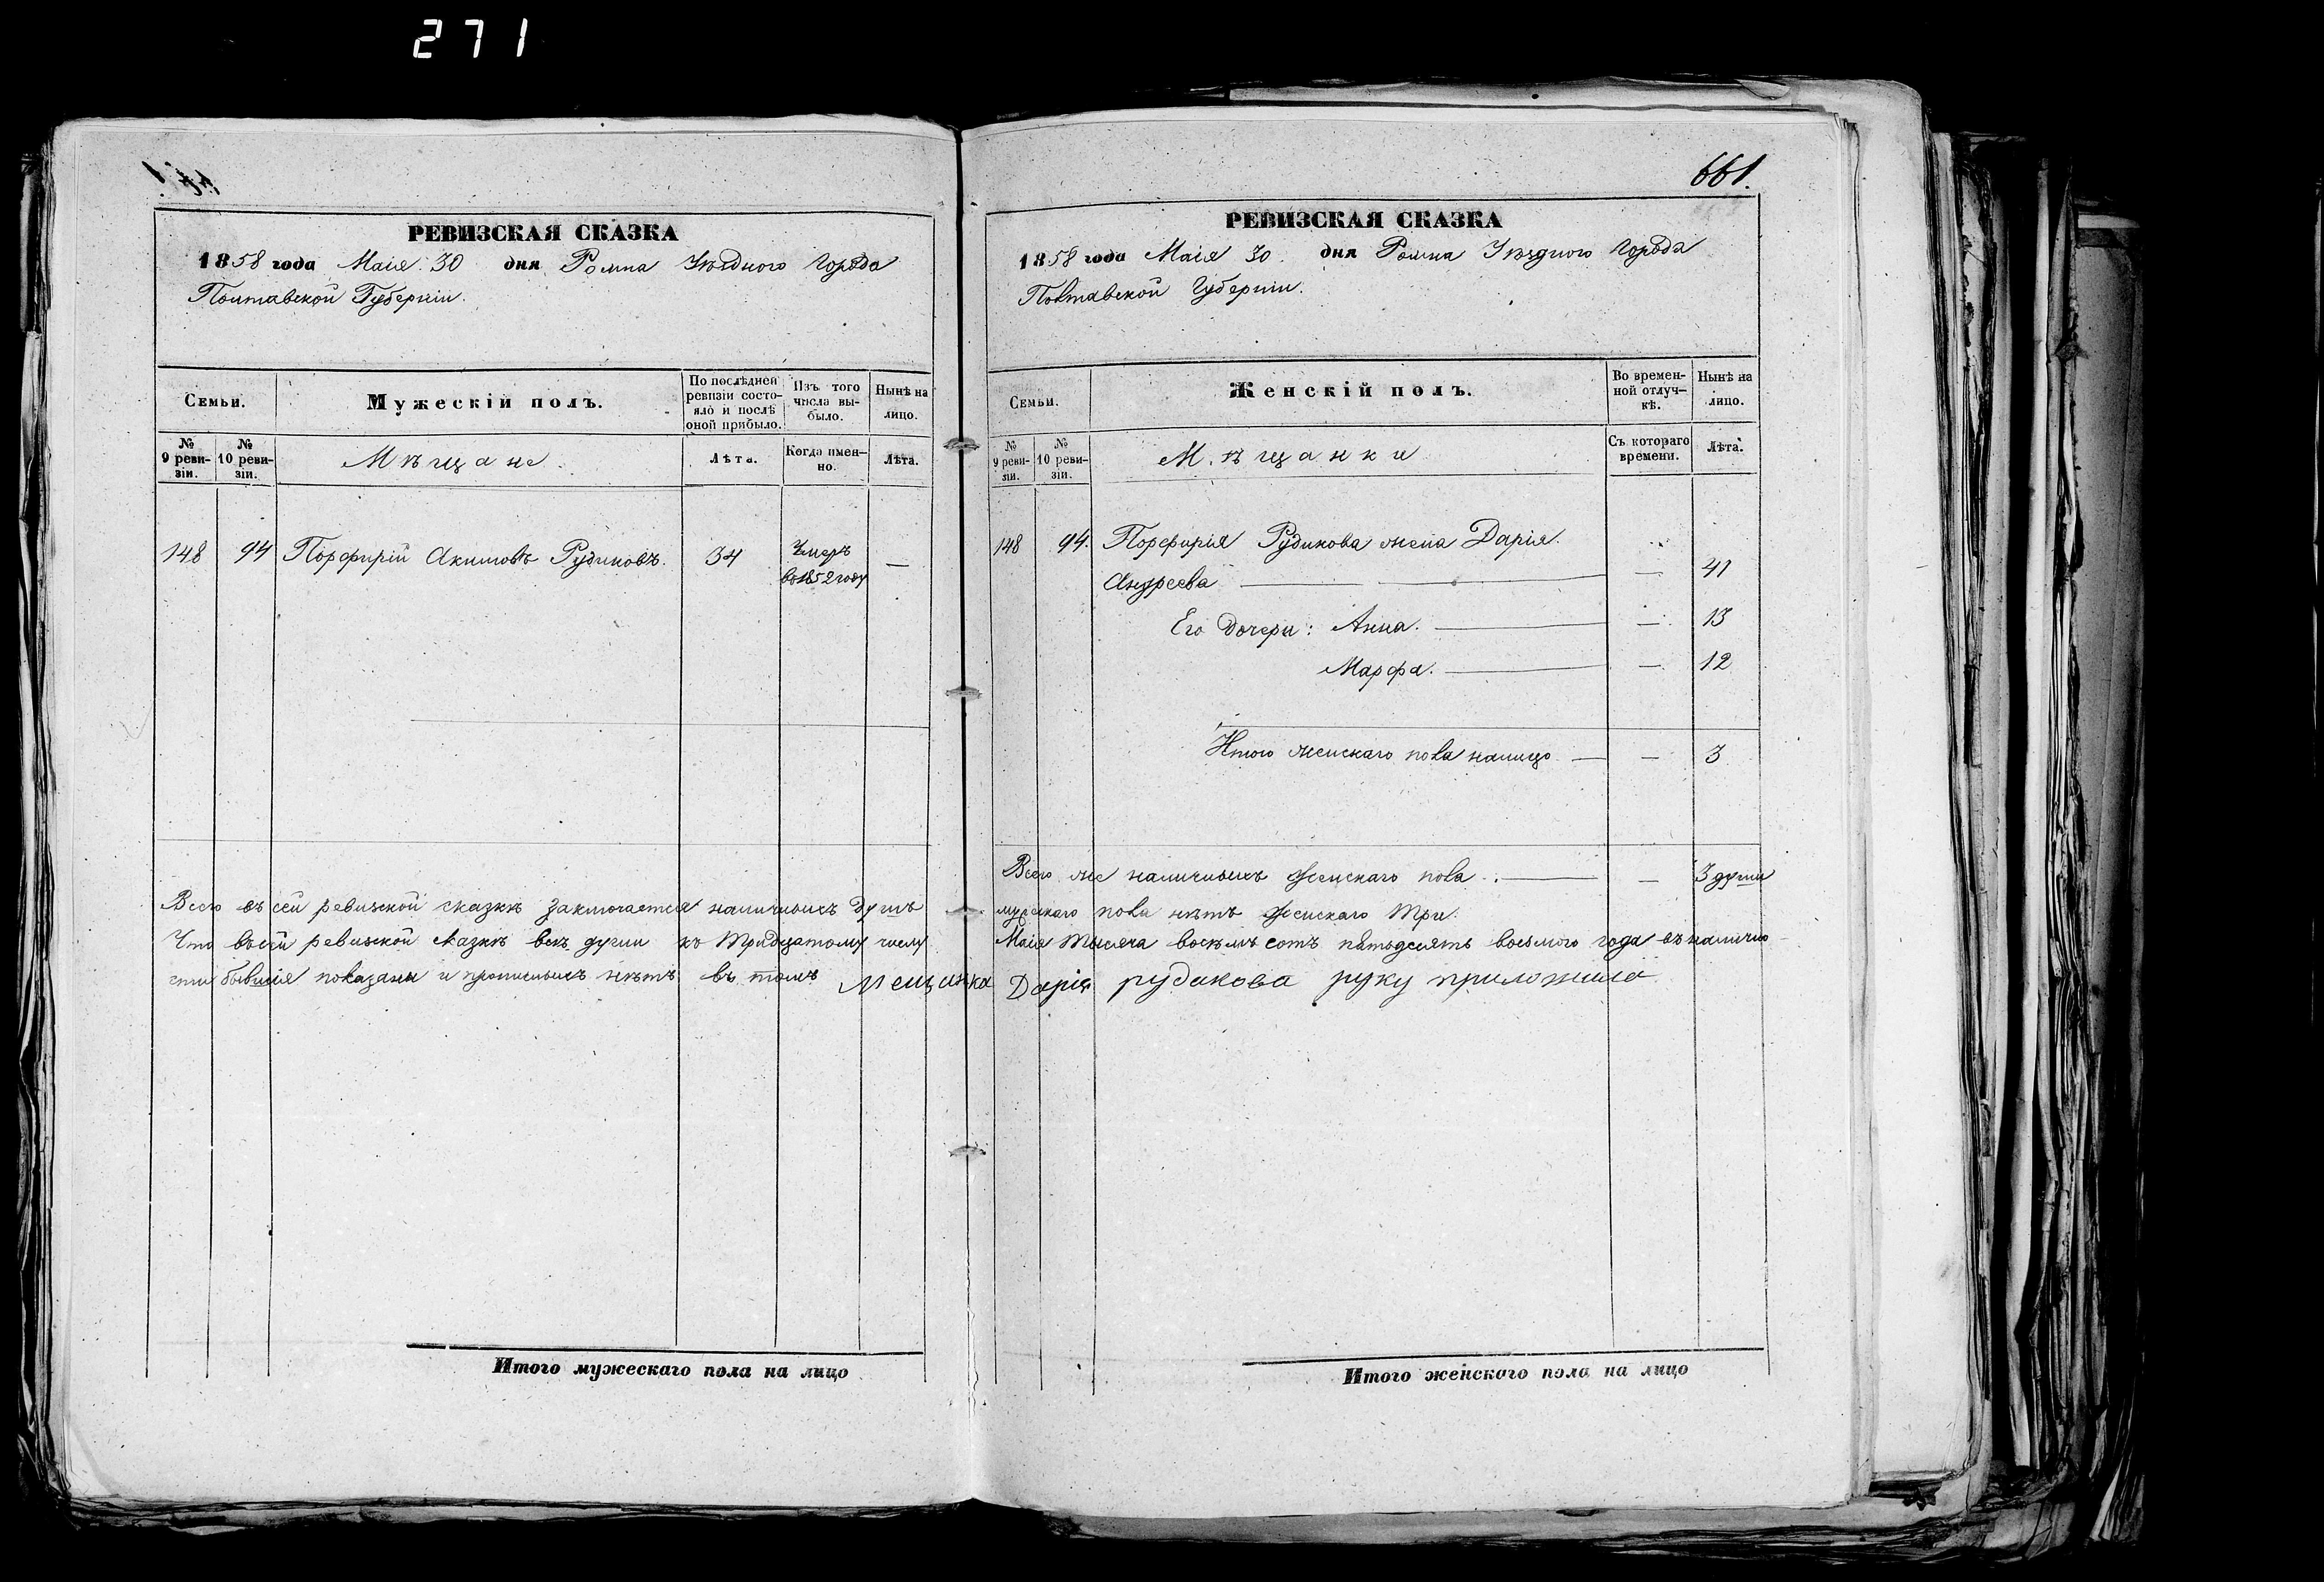 271
661.
РЕВИЗСКАЯ СКАЗКА
1858 года Маія 30 дня Ромна Уѣзднаго Города
Полтавской Губерніи.
Семьи.
Мужескій полъ.
По послѣдней ревизіи состояло и послѣ оной прибыло.
Изъ того числа выбыло.
Нынѣ на лицо.
№ 9 ревизіи.
№ 10 ревизіи.
Мѣщане.
Лѣта.
Когда именно.
Лѣта.
148 94 Порфирій Акимовъ Рудиковъ. 34 Умеръ въ 1852 году —
Всего въ сей ревизской сказкѣ заключается наличныхъ душъ
Что въ сей ревизской сказкѣ всѣ души къ тридцатому числу
сти бывшія показаны и прописныхъ нѣтъ въ томъ Мещанка
Итого мужескаго пола на лицо
РЕВИЗСКАЯ СКАЗКА
1858 года Маія 30. дня Ромна Уѣзднаго Города
Полтавской Губерніи.
Семьи.
Женскій полъ.
Во временной отлучкѣ.
Нынѣ на лицо.
№ 9 ревизіи.
№ 10 ревизіи.
Мѣщанки
Съ котораго времени.
Лѣта.
148 94. Порфирія Рудикова жена Дарія
Андреева — — 41
Его дочери: Анна. — — 13
Марфа. — — 12
Итого женскаго пола налицо — — 3
Всего же наличныхъ женскаго пола — — 3 души
мужскаго пола нѣтъ женскаго три.
Маія тысяча восемь сотъ пятьдесятъ восьмого года въ налично
Дарія рудакова руку приложила
Итого женскаго пола на лицо